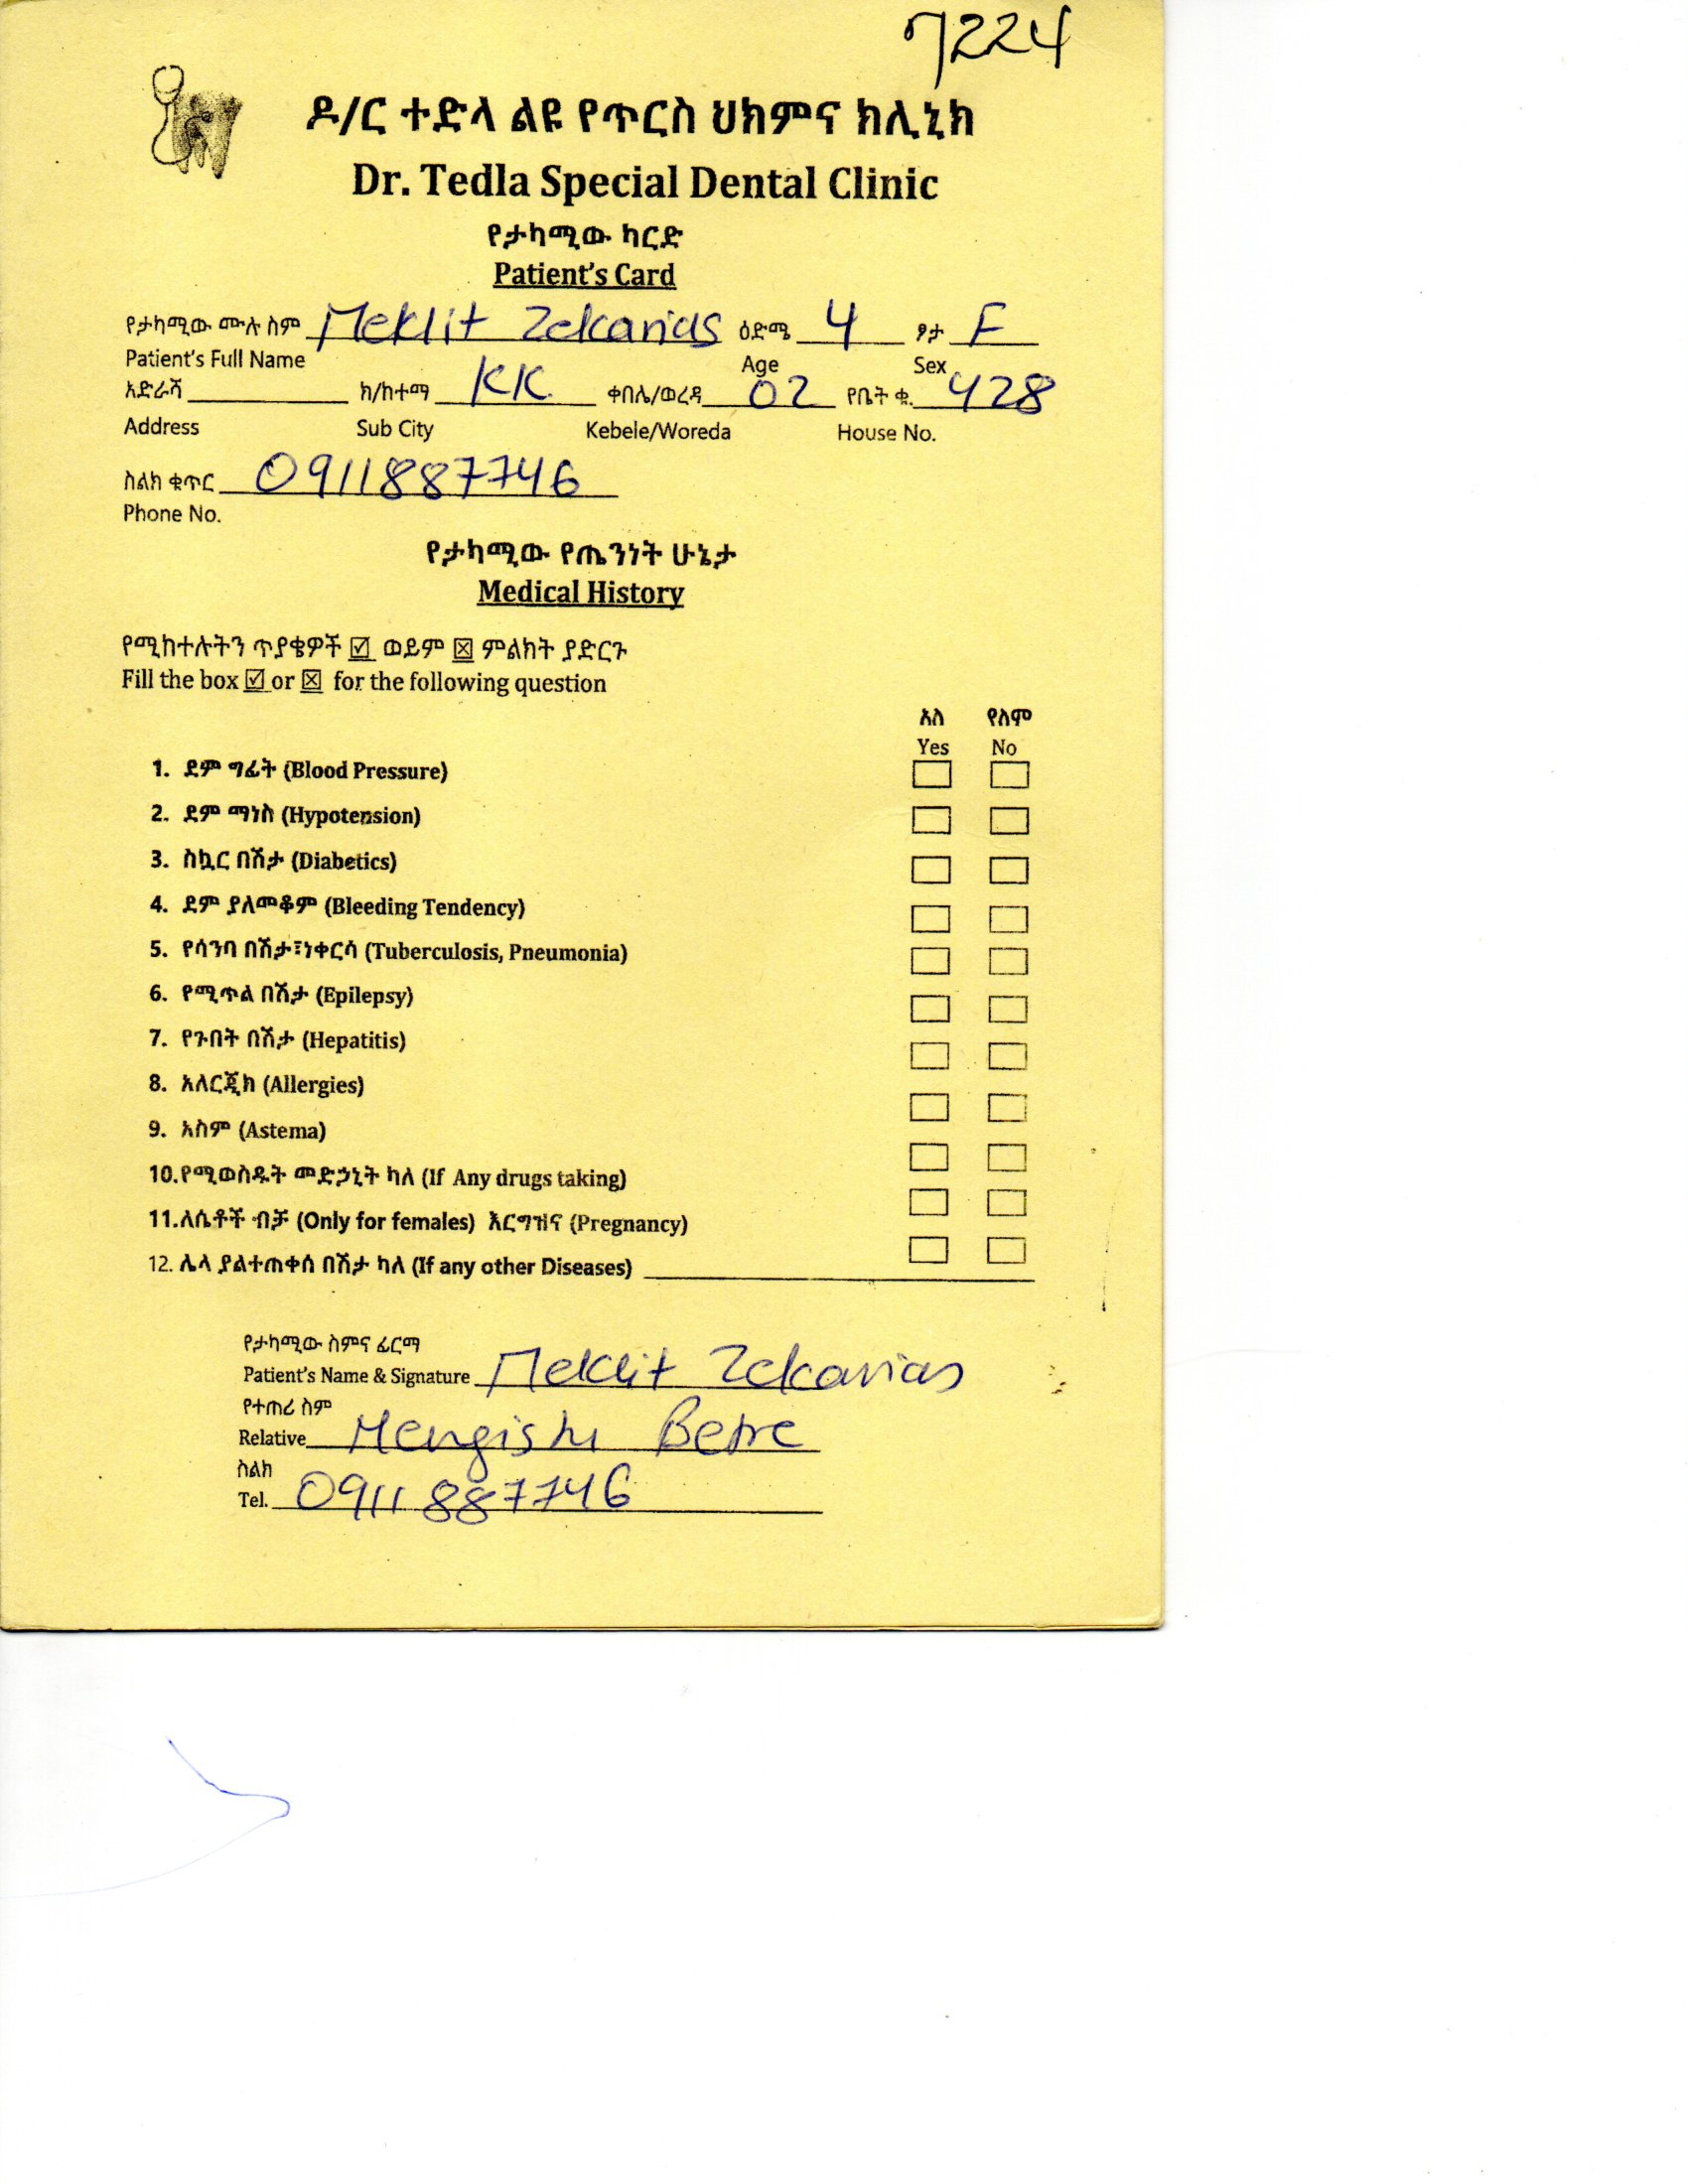 7224
ዶ/ር ተድላ ልዩ የጥርስ ህክምና ክሊኒክ
Dr. Tedla Special Dental Clinic
የታካሚው ካርድ
Patient's Card
የታካሚው ሙሉ ስም Meklit Zekarias ዕድሜ 4 ፆታ F
Patient's Full Name Age Sex
አድራሻ ክ/ከተማ KK ቀበሌ/ወረዳ 02 የቤት ቁ. 428
Address Sub City Kebele/Woreda House No.
ስልክ ቁጥር 0911887746
Phone No.
የታካሚው የጤንነት ሁኔታ
Medical History
የሚከተሉትን ጥያቄዎች ☑ ወይም ☒ ምልክት ያድርጉ
Fill the box ☑ or ☒ for the following question
አለ የለም
Yes No
1. ደም ግፊት (Blood Pressure)
2. ደም ማነስ (Hypotension)
3. ስኳር በሽታ (Diabetics)
4. ደም ያለመቆም (Bleeding Tendency)
5. የሳንባ በሽታ፣ነቀርሳ (Tuberculosis, Pneumonia)
6. የሚጥል በሽታ (Epilepsy)
7. የጉበት በሽታ (Hepatitis)
8. አለርጂክ (Allergies)
9. አስም (Astema)
10.የሚወስዱት መድኃኒት ካለ (If Any drugs taking)
11.ለሴቶች ብቻ (Only for females) እርግዝና (Pregnancy)
12. ሌላ ያልተጠቀሰ በሽታ ካለ (If any other Diseases)
የታካሚው ስምና ፊርማ
Patient's Name & Signature Meklit Zekarias
የተጠሪ ስም
Relative Mengistu Betre
ስልክ
Tel. 0911887746